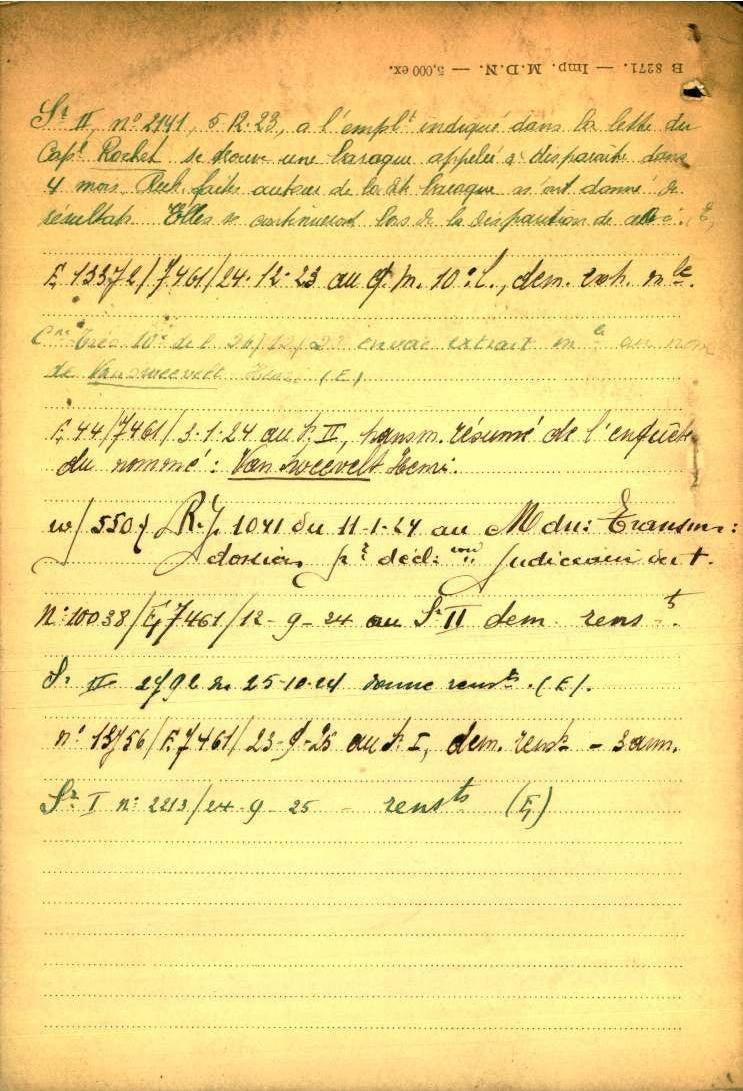 B 8271. — Imp. M.D.N. — 5,000 ex.
Sr II, n° 2141, 8 12-23, a l'emplt indiqué dans la lettre du
Capt Rochet se trouve une baraque appelée à disparaitre dans
4 mois. Rech. faites autour de ladite baraque n'ont donné de
résultats. Elles se continueront lors de la disparition de (E)
E 13372/7461/24-12-23 au d. m. 10e l., dem. m le.
10e de l 26/12/23 envoie extrait m le au nom
de Van Henri (E)
E 44/7461/3-1-24 au Sr. II, transm. résumé de l'enquête
du nommé: Van Henri.
R.J. 1041 du 11-1-24 au M du: Transm:
dossier pr décl: on
N° 10038/E, 7461/12-9-24 au Sr II dem. renst.
Sr II 2792 du 25-10-24 donne rensts. (E).
n° 13756/E 7461/23-9-25 au Sr. I, dem. rensts -
Sr. I n° 2213/24-9-25 - rensts (E)